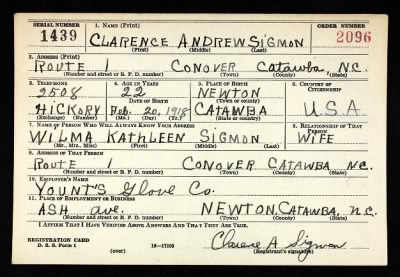 SERIAL NUMBER 1. NAME (Print) ORDER NUMBER
1439 CLARENCE ANDREW SIGMON 2096
(First) (Middle) (Last)
2. ADDRESS (Print)
ROUTE 1 CONOVER CATAWBA, N.C.
(Number and street or R. F. D. number) (Town) (County) (State)
3. TELEPHONE 4. AGE IN YEARS 5. PLACE OF BIRTH 6. COUNTRY OF CITIZENSHIP
2508 22 NEWTON
DATE OF BIRTH (Town or county)
HICKORY Feb. 20, 1918 CATAWBA U.S.A
(Exchange) (Number) (Mo.) (Day) (Yr.) (State or country)
7. NAME OF PERSON WHO WILL ALWAYS KNOW YOUR ADDRESS 8. RELATIONSHIP OF THAT PERSON
WILMA KATHLEEN SIGMON WIFE
(Mr., Mrs., Miss) (First) (Middle) (Last)
9. ADDRESS OF THAT PERSON
ROUTE 1 CONOVER CATAWBA N.C.
(Number and street or R. F. D. number) (Town) (County) (State)
10. EMPLOYER'S NAME
YOUNT'S Glove Co.
11. PLACE OF EMPLOYMENT OR BUSINESS
ASH ave. NEWTON, CATAWBA, N.C.
(Number and street or R. F. D. number) (Town) (County) (State)
I AFFIRM THAT I HAVE VERIFIED ABOVE ANSWERS AND THAT THEY ARE TRUE.
REGISTRATION CARD
D. S. S. Form 1 (over) 16—17105 Clarence A Sigmon